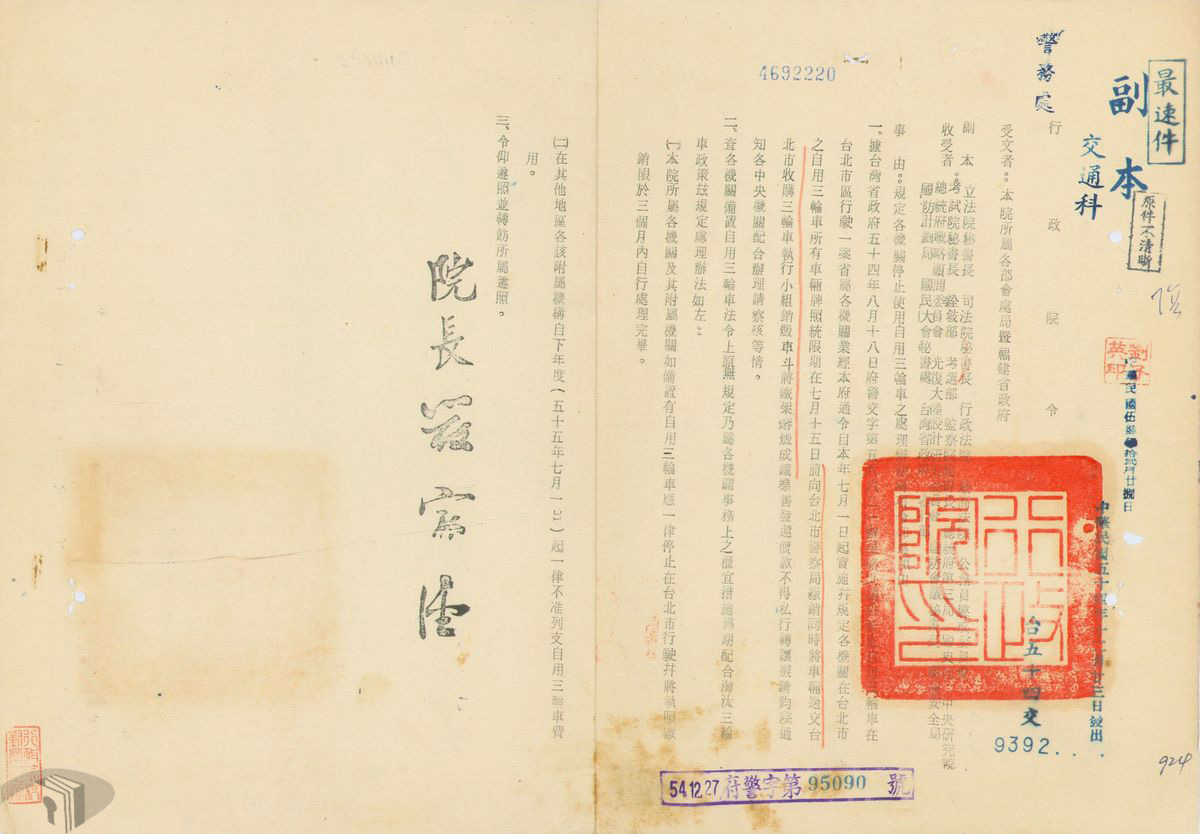 最速件
副本
交通科
原件不清晰
警務處
4692220
行政院令
受文者：本院所屬各部會處局暨福建省政府
副本
收受者：
立法院秘書長 司法院秘書長 行政法院
考試院秘書長 銓敍部 考選部 監察院
總統府戰略顧問委員會 光復大陸設計研
國防計劃局 國民大會秘書處 台灣省政府
事由：規定各機關停止使用自用三輪車之處理
一、據台灣省政府五十四年八月十八日府警交字第五
台北市區行駛一案省屬各機關業經本府通令自本年七月一日起實施幷規定各機關在台北市
之自用三輪車所有車輛牌照統限期在七月十五日前向台北市警察局繳銷同時將車輛送交台
北市收購三輪車執行小組銷燬車斗將鐵架潛燬成鐵標售發還價款不得私行轉讓擬請鈞院通
知各中央機關配合辦理請察核等情。
二、查各機關備置自用三輪車法令上原無規定乃屬各機關事務上之權宜措施爲期配合淘汰三輪
車政策茲規定處理辦法如左：
㈠本院所屬各機關及其附屬機關如備置有自用三輪車應一律停止在台北市行駛幷將執照繳
銷限於三個月內自行處理完畢。
㈡在其他地區各該附屬機構自下年度（五十五年七月一日）起一律不准列支自用三輪車費
用。
三、令仰遵照並轉飭所屬遵照。
院長嚴家淦
台五十四交
9392
54.12.27 府警字第 95090 號
924